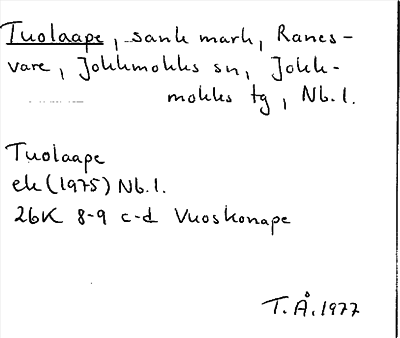 Tuolaape, sank mark, Ranes-
vare, Jokkmokks sn, Jokk-
mokks tg, Nb.l.
Tuolaape
ek (1975) Nb.l.
26K 8-9 c-d Vuoskonape
T.Å. 1977